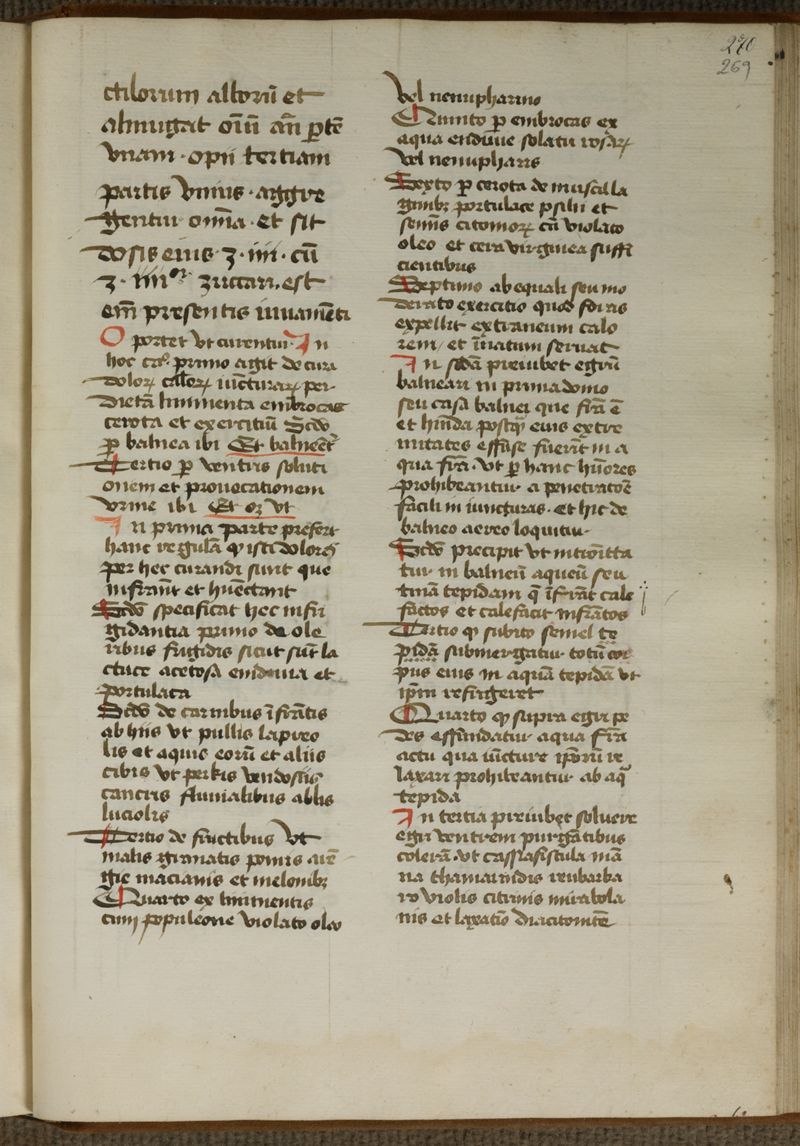 270
269
ctilorum alborū et
almugat oīū an̄ ꝑtē
vnam · opii tertiam
partis vnius · aggre
gentur omīa · et sit
dosis eius ʒ · iiii · cū
ʒ · iiiiᵒʳ zuccari, est
em̄ presentis iuuamēti
Oportet vt curentur · In
hoc primo agit de cura
dolorꝝ calorꝝ iūcturarꝝ per
dietā linimenta embrocas
cerota et exercitiū Scd̄o
ꝑ balnea ibi Et balneēt̄
Tertio ꝑ ventris soluti
onem et prouocationem
vrine ibi Et oꝫ vt
In prima parte presert
hanc regulā ꝙ isti dolores
per hec curandi sunt que
infrīānt et hūectant
Scd̄o specificat hec infri
gidantia primo de ole
ribus frigidis sicut sūt la
ctuce acetosa endiuia et
portulaca
Scd̄o de carnibus īfrātis
ab hiis vt pullis lapreo
lis et aquis eorū et aliis
cibis vt perkis vendosiis
cancris fluuialibus albis
luciolis
Tertio de fructibus vt
malis granatis pomis
macianis et melonibꝫ
Quarto ex linimentis
cum populeone violato oleo
vel nenupharino
Quinto ꝑ embrocas ex
aqua endiuie solatri rosarꝝ
vel nenupharis
Sexto ꝑ cerota de muscilla
ginibꝫ portulace psilii et
semīs citoniorꝝ cū violato
oleo et cera virginea suffi
cientibus
Septimo ab equali seu mo
derato exercitio quod foras
expellit extraneum calo
rem / et īnatum seruat
In scd̄a preiubet egrū
balneari in prima domo
seu casa balnei que frīa ē
et hinda postꝙ eius extre
mitates effuse fuerīt in a
qua frīa · vt ꝑ hanc hūores
prohibeantur a penetratōe
facili in iuncturas · et hic de
balneo aereo loquitur ·
Scd̄o precipit vt intromitta
tur in balneū aqueū seu
tinā tepidam q̄ īfrīat cale
factos et calefacit infrīatos
Tertio ꝙ subito semel te
pida submergatur totū cor
pus eius in aquā tepidā vt
ip̄m refrigeret
Quarto ꝙ supra egri pe
des effundatur aqua frīa
actu qua iūcture ip̄orū re
laxari prohibeantur ab aq̄
tepida
In tertia preiubet soluere
egri ventrem purgātibus
colerā vt cassiafistula mā
na thamarindis reubarba
ro violis citrinis mirabola
nis et laxatio diacitonitē